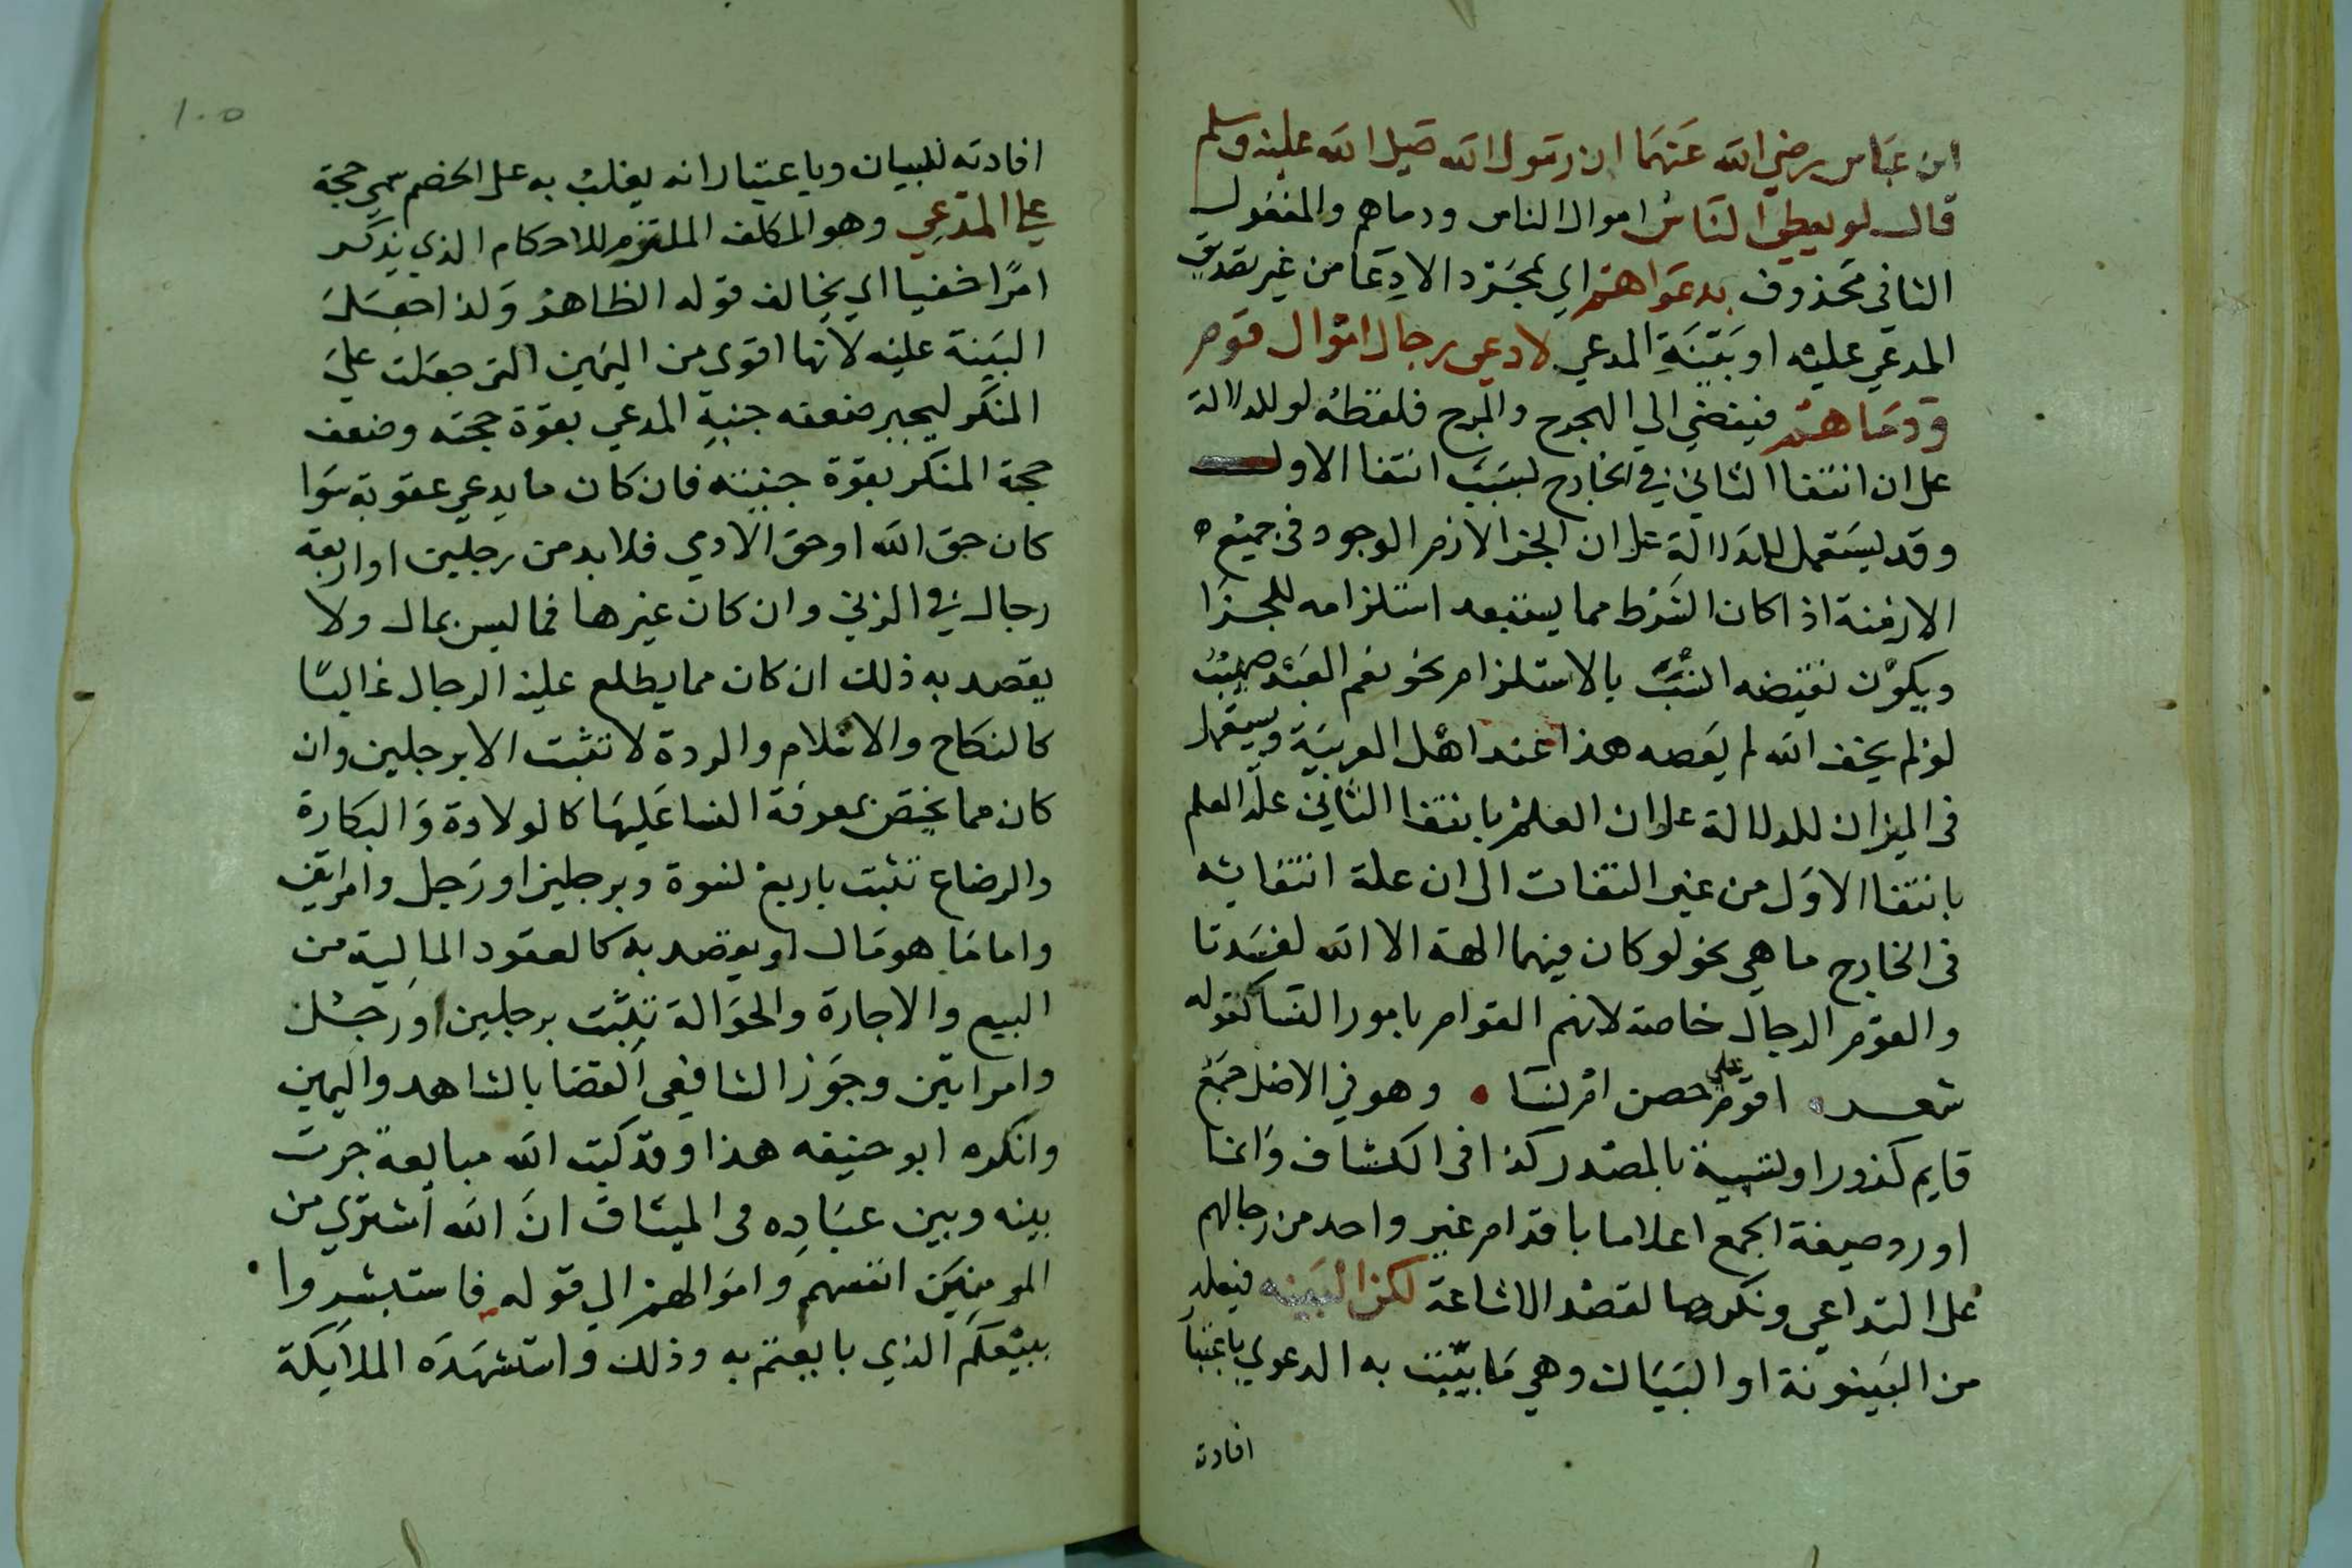 ابن عباس رضي الله عنهما ان رسول الله صلى الله عليه وسلم
قال لو يعطى الناس اموال الناس ودماهم والمفعول
الثاني محذوف بدعواهم اي بمجرد الادعا من غير تصديق
المدعي عليه او بينة المدعي لادعى رجال اموال قوم
ودماهم فيفضي الي الهجرح والمرج فلفظه لو للدلالة
على ان انتفا الثاني في الخارج بسبب انتفا الاول
وقد يستعمل للدلالة على ان الجزا لازم الوجود في جميع
الازمنة اذا كان الشرط مما يستبعد استلزامه للجزا
ويكون نقيضه انسب بالاستلزام نحو نعم العبد صهيب
لو لم يخف الله لم يعصه هذا عند اهل العربية ويستعمل
في الميزان للدلالة على ان العلم بانتفا الثاني علة العلم
بانتفا الاول من غير التفات الى ان علة انتفائه
في الخارج ما هي نحو لو كان فيهما الهة الا الله لفسدتا
والقوم الرجال خاصة لانهم القوام بامور النسا كقوله
شعر اقوم حصن ام نسا وهو في الاصل جمع
قايم كزور او تسمية بالمصدر كذا في الكشاف وانما
اورد صيغة الجمع اعلاما باقدام غير واحد من رجالهم
على التداعي ونكرها لقصد الاشاعة لكن البينه فيعلة
من البينونة او البيان وهي ما يثبت به الدعوي باعتبار
افادته
١٠٥
افادته للبيان وباعتبار انه يغلب به على الخصم سمي حجة
على المدعي وهو المكلف الملتزم للاحكام الذي يذكر
امرا خفيا اي يخالف قوله الظاهر ولذا جعلت
البينة عليه لانها اقوي من اليمين التى جعلت علي
المنكر ليجبر ضعفه جنبة المدعي بقوة حجته وضعف
حجة المنكر بقوة جنبته فان كان ما يدعي عقوبة سوا
كان حق الله او حق الادمي فلا بد من رجلين او اربعة
رجال في الزني وان كان غيرها فما ليس بمال ولا
يقصد به ذلك ان كان مما يطلع عليه الرجال غالبا
كالنكاح والاسلام والردة لا تثبت الا برجلين وان
كان مما يختص بمعرفة النسا عليها كالولادة والبكارة
والرضاع تثبت باربع نسوة وبرجلين او رجل وامراتين
واما ما هو مال او يقصد به كالعقود المالية من
البيع والاجارة والحوالة تثبت برجلين او رجل
وامراتين وجوز الشافعي القضا بالشاهد واليمين
وانكره ابو حنيفه هذا وقد كتب الله مبايعة جرت
بينه وبين عباده في الميثاق ان الله اشتري من
المومنين انفسهم واموالهم الي قوله فاستبشروا
ببيعكم الذي بايعتم به وذلك واستشهده الملايكة